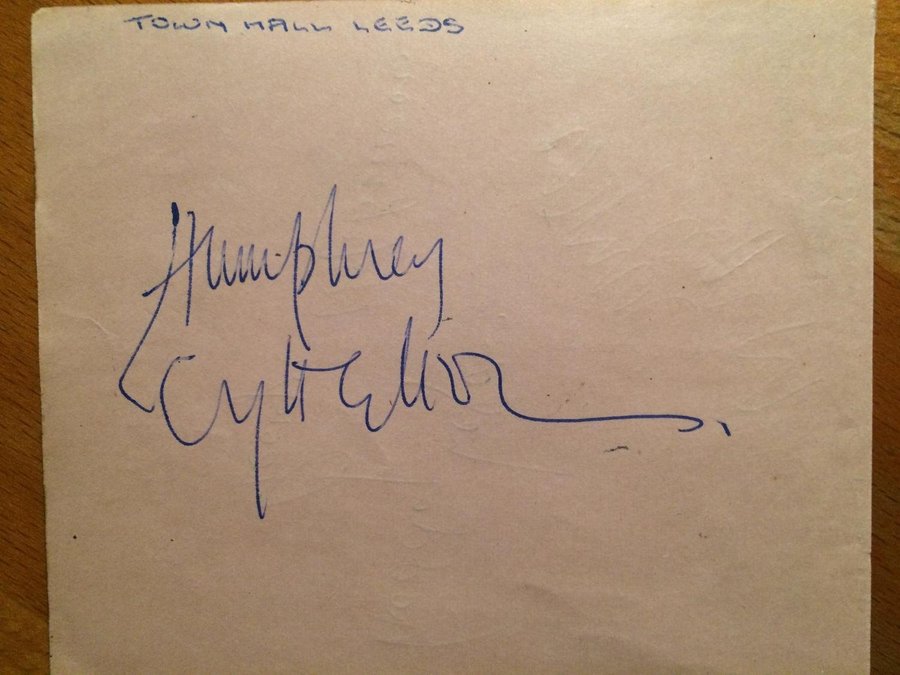 TOWN HALL LEEDS
Humphrey
Lyttelton